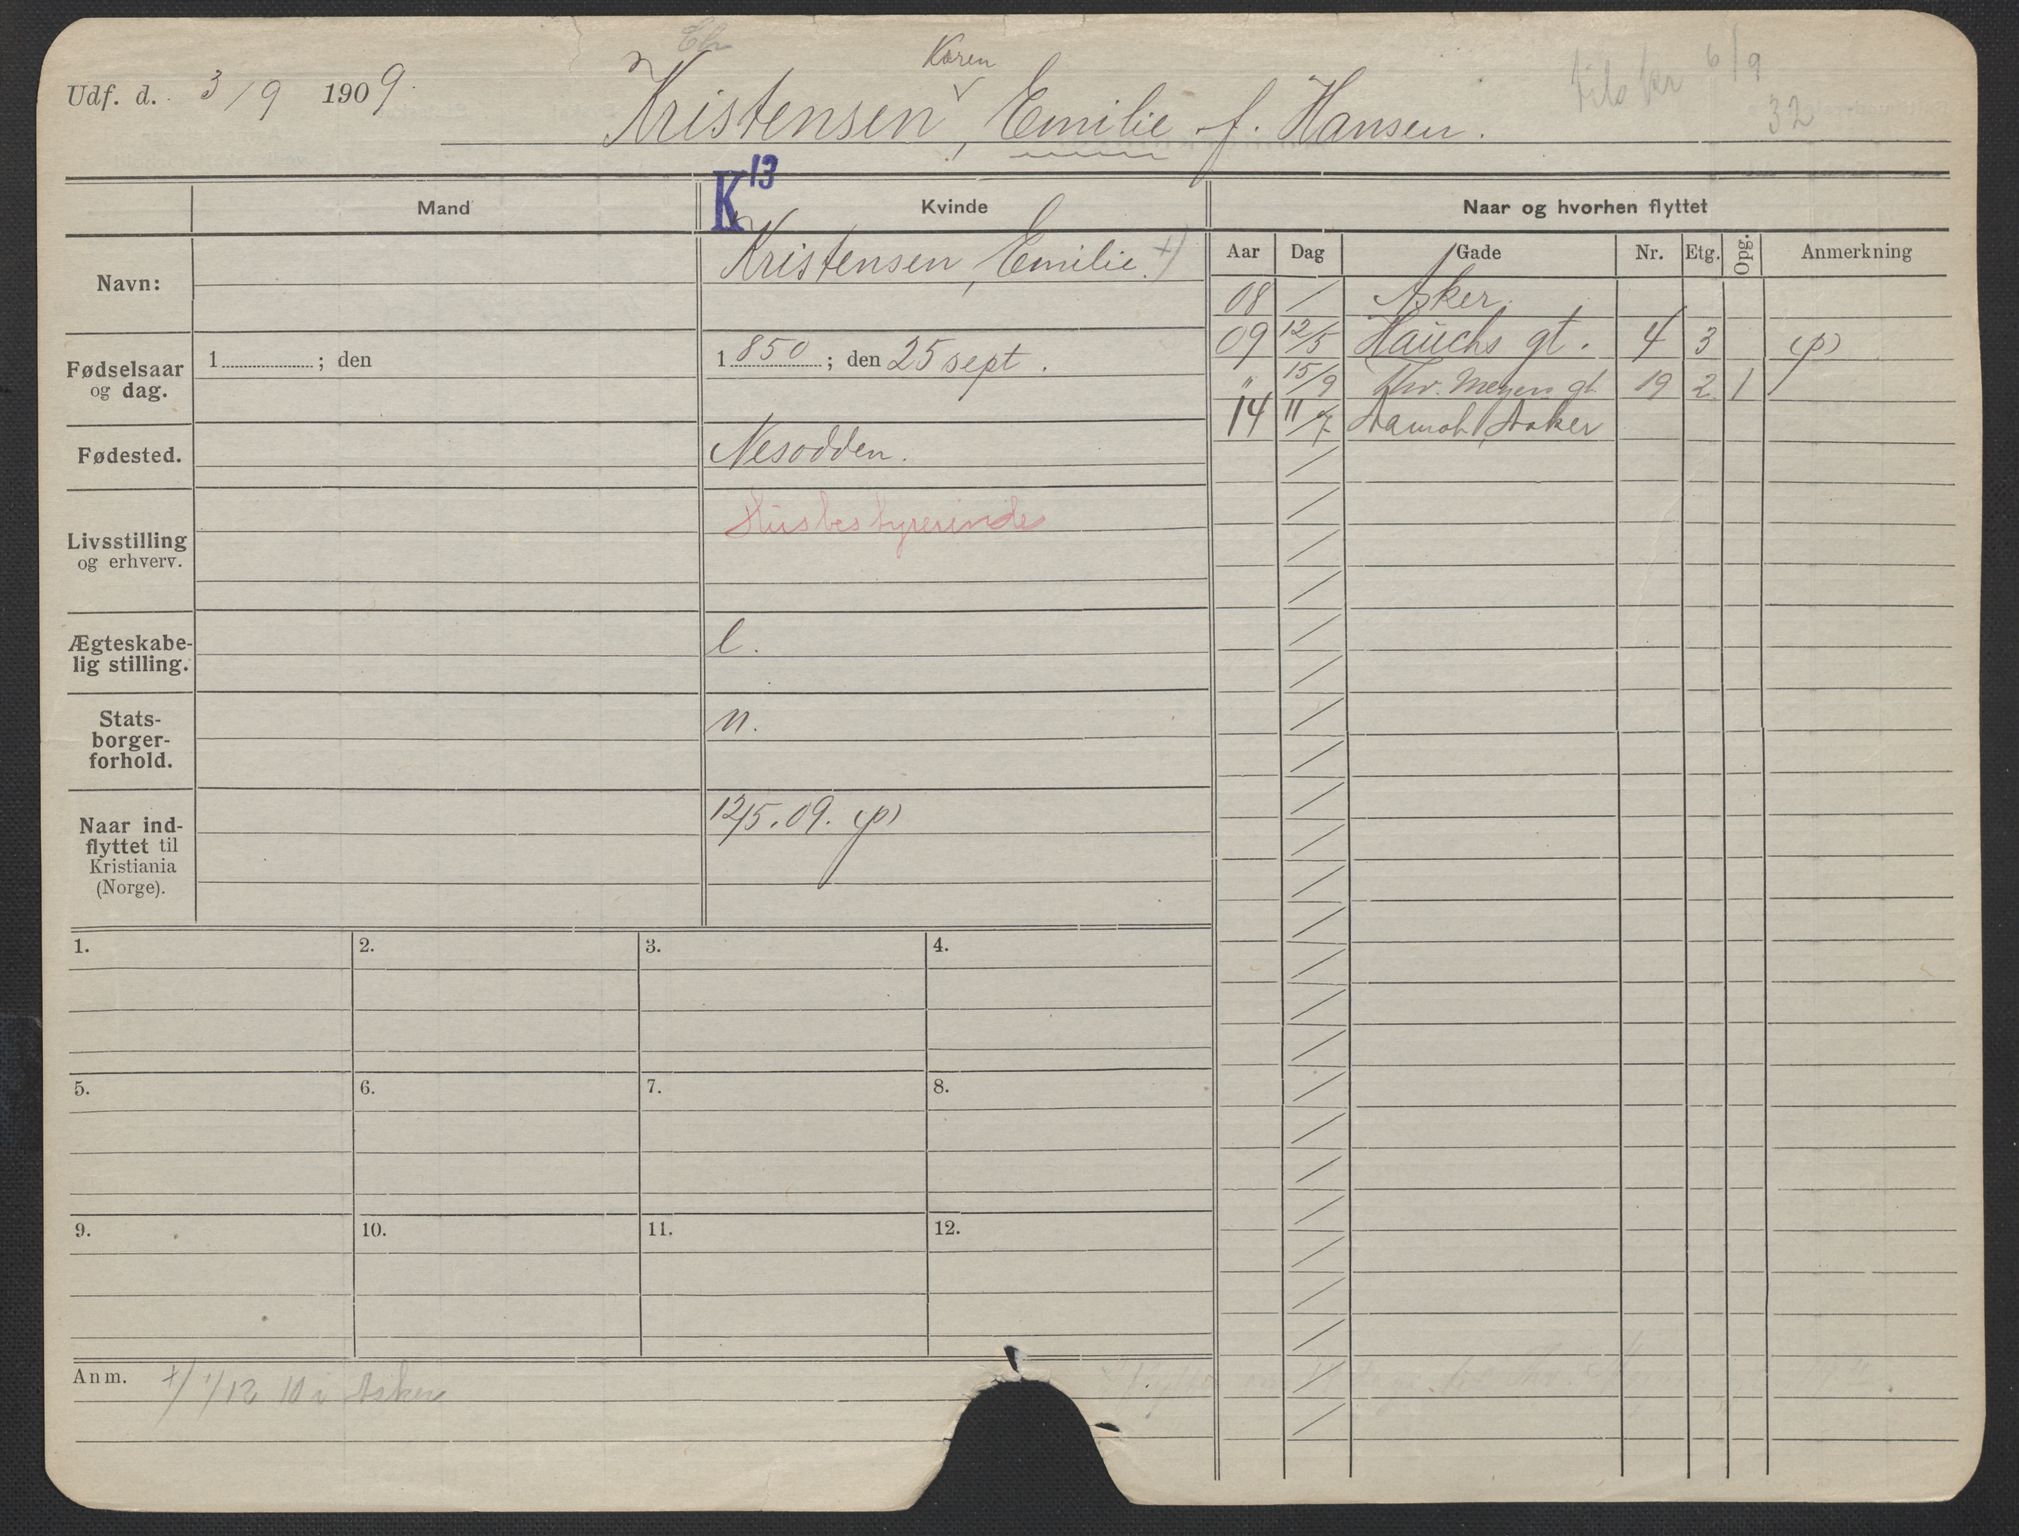 Udf. d. 3/9 1909.
Karen
Kristensen, Emilie f. Hansen.
6/9
32
K13
Mand
Kvinde
Naar og hvorhen flyttet
Navn:
Kristensen, Emilie. +)
Aar Dag Gade Nr. Etg. Opg. Anmerkning
08 / Asker.
09 12/5 Hauchs gt. 4 3 (p)
" 15/9 Thv. Meyers gt. 19 2 1
14 11/7 Asker
Fødselsaar og dag.
1 ; den
1850; den 25 sept.
Fødested.
Nesodden.
Livsstilling og erhverv.
Husbestyrerinde
Ægteskabe-
lig stilling.
e.
Stats-
borger-
forhold.
n.
Naar ind-
flyttet til
Kristiania
(Norge).
12/5.09. (p)
1. 2. 3. 4.
5. 6. 7. 8.
9. 10. 11. 12.
Anm. +) 1/12 10 i Asker